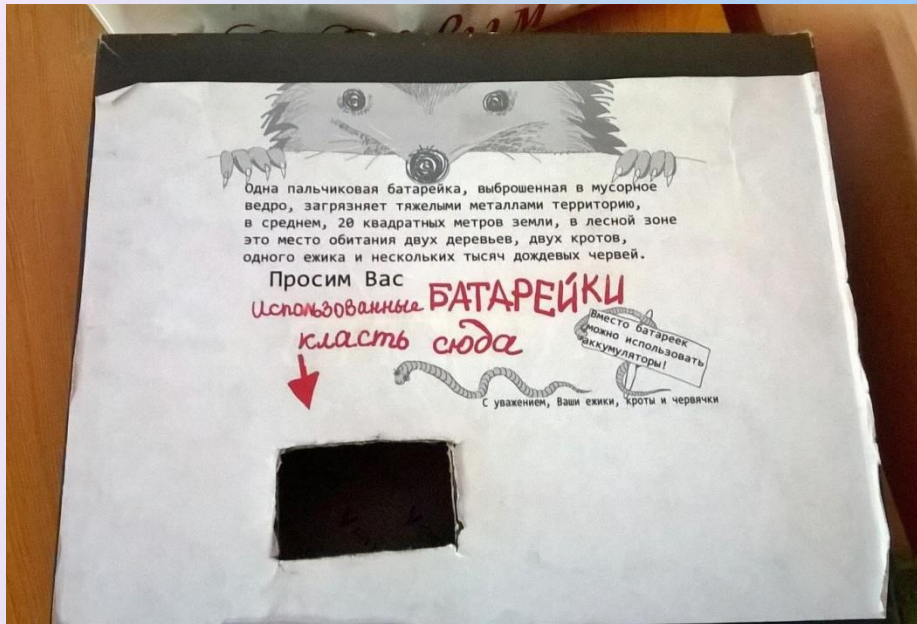 Одна пальчиковая батарейка, выброшенная в мусорное
ведро, загрязняет тяжелыми металлами территорию,
в среднем, 20 квадратных метров земли, в лесной зоне
это место обитания двух деревьев, двух кротов,
одного ежика и нескольких тысяч дождевых червей.
Просим Вас
использованные БАТАРЕЙКИ
класть сюда
Вместо батареек
можно использовать
аккумуляторы!
С уважением, Ваши ежики, кроты и червячки